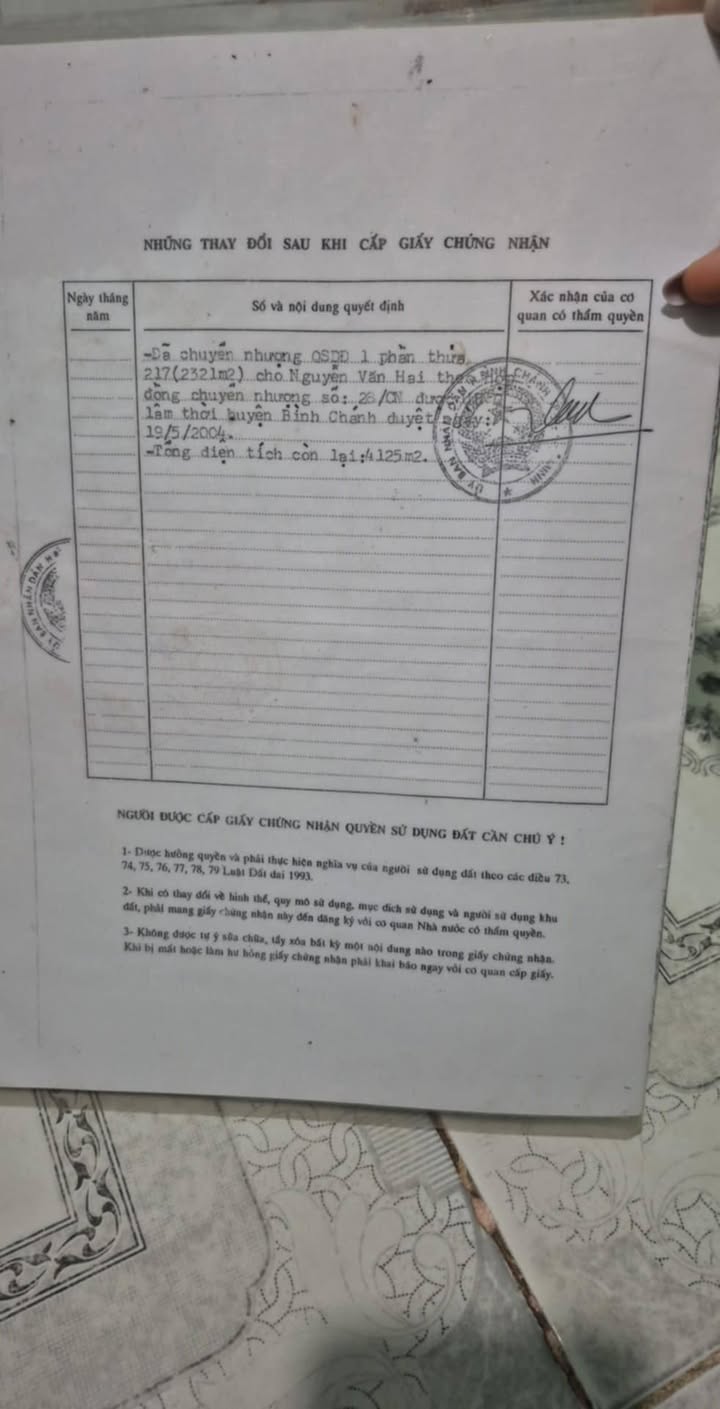 NHỮNG THAY ĐỔI SAU KHI CẤP GIẤY CHỨNG NHẬN
Ngày tháng năm
Số và nội dung quyết định
Xác nhận của cơ quan có thẩm quyền
-Đã chuyển nhượng QSDĐ 1 phần thửa
217(2321m2) cho Nguyễn Văn Hai
đồng chuyển nhượng số: 28/CN
lâm thời huyện Bình Chánh duyệt
19/5/2004.
-Tổng diện tích còn lại:4125m2.
ỦY BAN NHÂN DÂN H. BÌNH CHÁNH
ỦY BAN NHÂN DÂN
NGƯỜI ĐƯỢC CẤP GIẤY CHỨNG NHẬN QUYỀN SỬ DỤNG ĐẤT CẦN CHÚ Ý !
1- Được hưởng quyền và phải thực hiện nghĩa vụ của người sử dụng đất theo các điều 73,
74, 75, 76, 77, 78, 79 Luật Đất đai 1993.
2- Khi có thay đổi về hình thể, quy mô sử dụng, mục đích sử dụng và người sử dụng khu
đất, phải mang giấy chứng nhận này đến đăng ký với cơ quan Nhà nước có thẩm quyền.
3- Không được tự ý sửa chữa, tẩy xóa bất kỳ một nội dung nào trong giấy chứng nhận.
Khi bị mất hoặc làm hư hỏng giấy chứng nhận phải khai báo ngay với cơ quan cấp giấy.